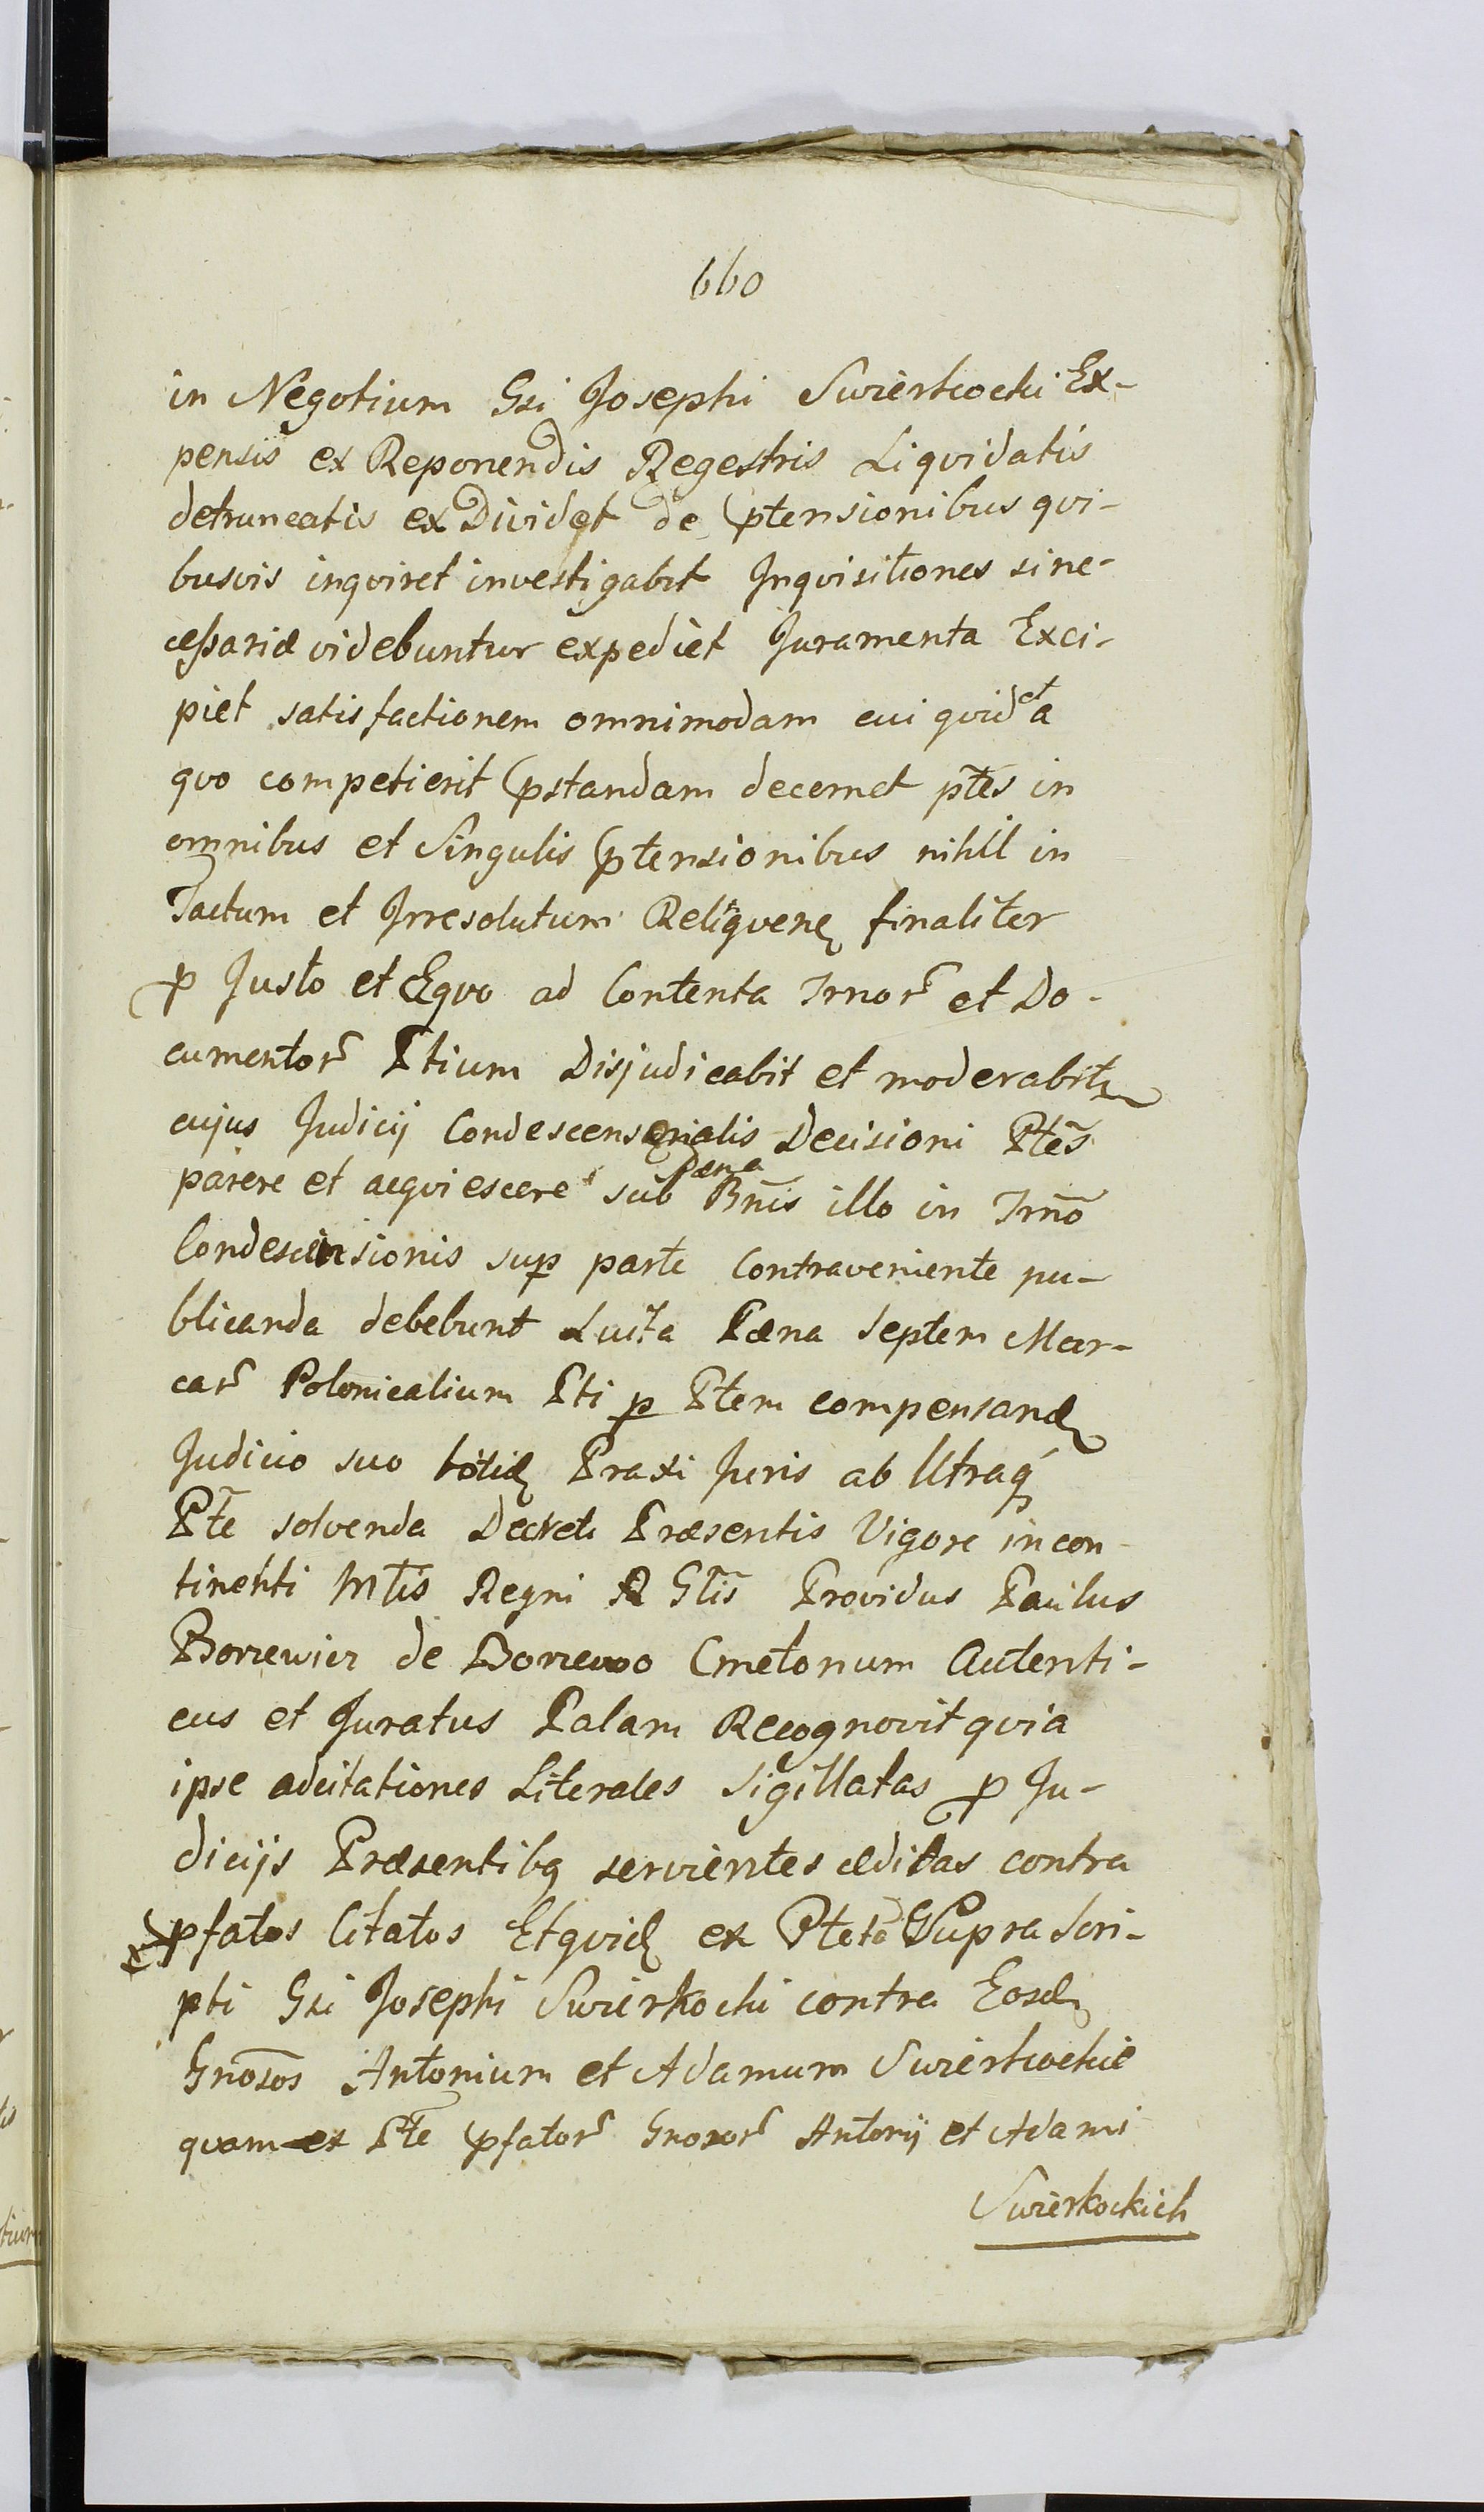 660
in Negotium Gsi Josephi Swierkocki Ex-
pensis ex Reponendis Regestris Liquidatis
detruncatis exDividet de ptensionibus qvi-
busvis inqviret investigabit Inqvisitiones si ne-
cessariæ videbuntur expediet Juramenta Exci-
piet satisfactionem omnimodam cui qvid et a
qvo competierit pstandam decernet ptes in
omnibus et Singulis ptensionibus nihil in
Tactum et Irresolutum Reliqvenę finaliter
p Justo et Æqvo ad Contenta Trnor et Do-
cumentor Ptium Disjudicabit et moderabitz
cujus Judicij Condescensorialis Decisioni Ptēs
parere et acqviescere sub Pæna Bnīs illo in Trnō
Condescensionis sup parte Contraveniente pu-
blicanda debebunt Luita Pæna Septem Mar-
car Polonicalium Pti p Ptem compensand
Judicio suo totid Praxi Juris ab Utraq
Ptē solvenda Decreti Præsentis Vigore incon-
tinenti Mtīs Regni Gtīs Providus Paulus
Borzewicz de Borzewo Cmetonum Autenti-
cus et Juratus Palam Recognovit qvia
ipse adcitationes Literales Sigillatas p Ju-
dicijs Præsentibq servientes æditas contra
pfatos Citatos Etqvid ex Pte Supra Scri-
pti Gsi Josephi Swierkocki contra Eosd
Gnosos Antonium et Adamum Swierkockie
qvam ex Ptē pfator Gnosor Antonij et Adami
Swierkockich